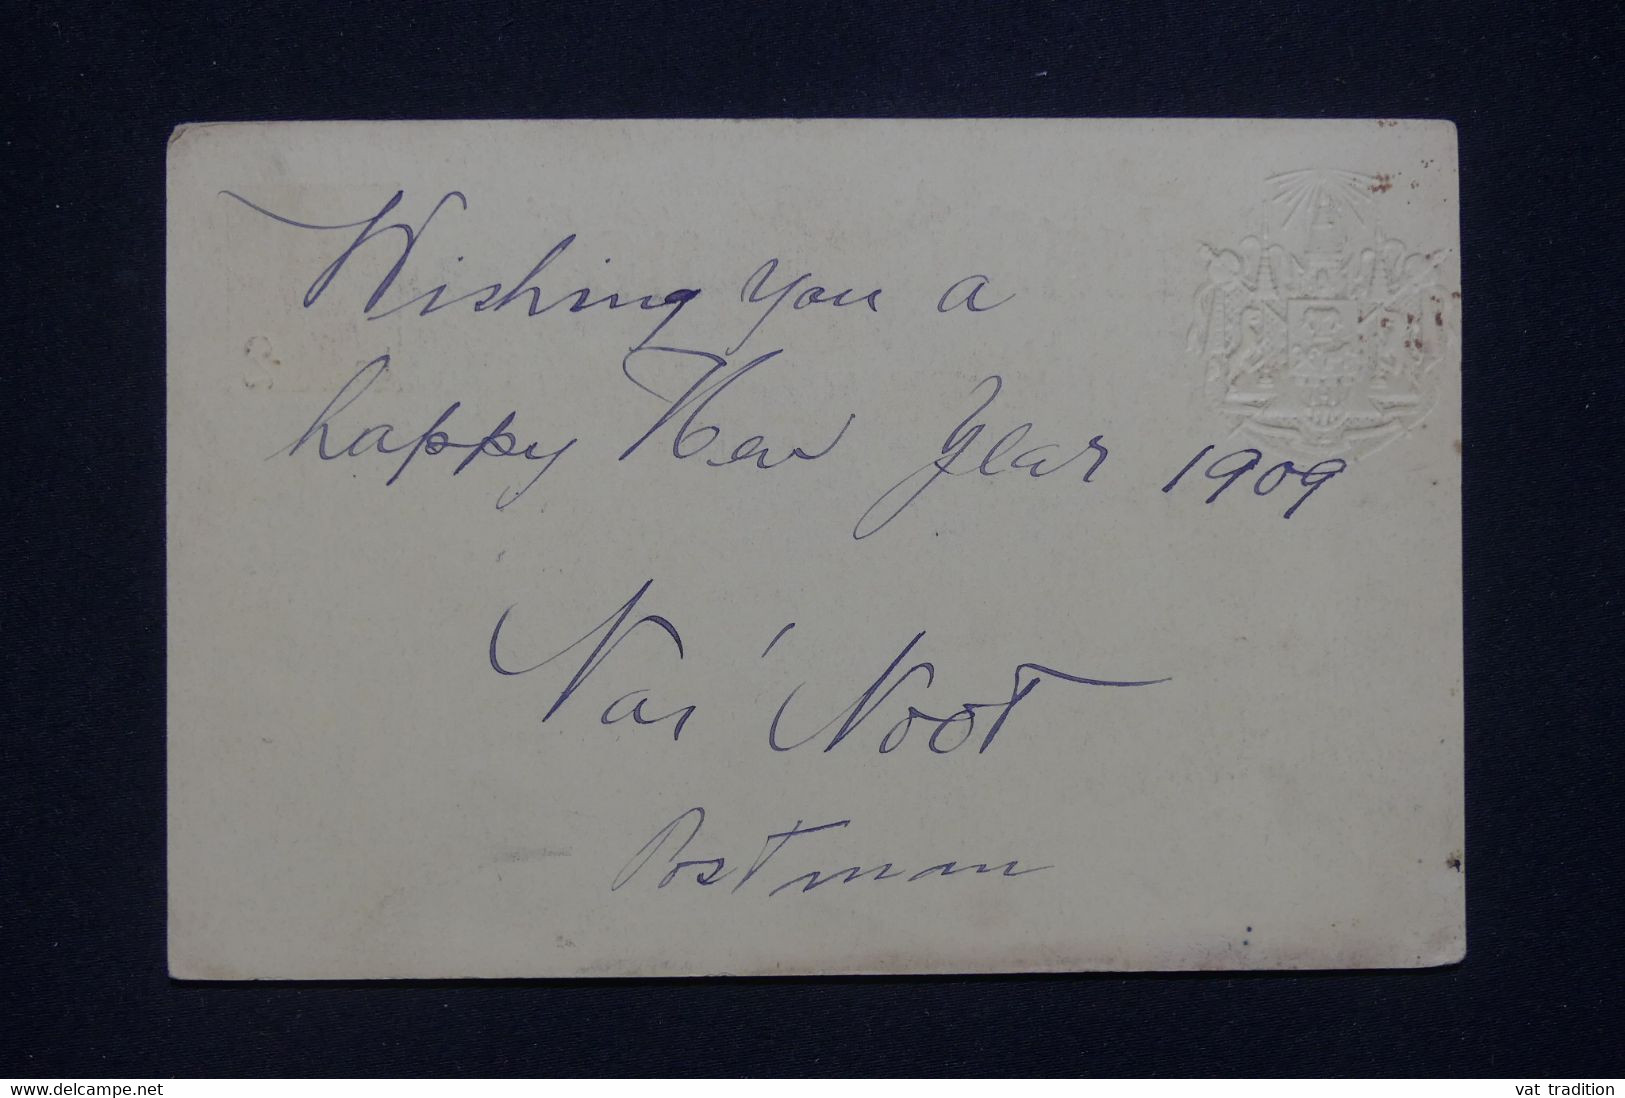 Wishing you a
happy New Year 1909
Nai Noot
Postman
www.delcampe.net
vat_tradition